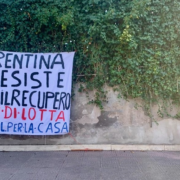 RENTINA
ESISTE
IL RECUPERO
DI LOTTA
L PER-LA-CASA